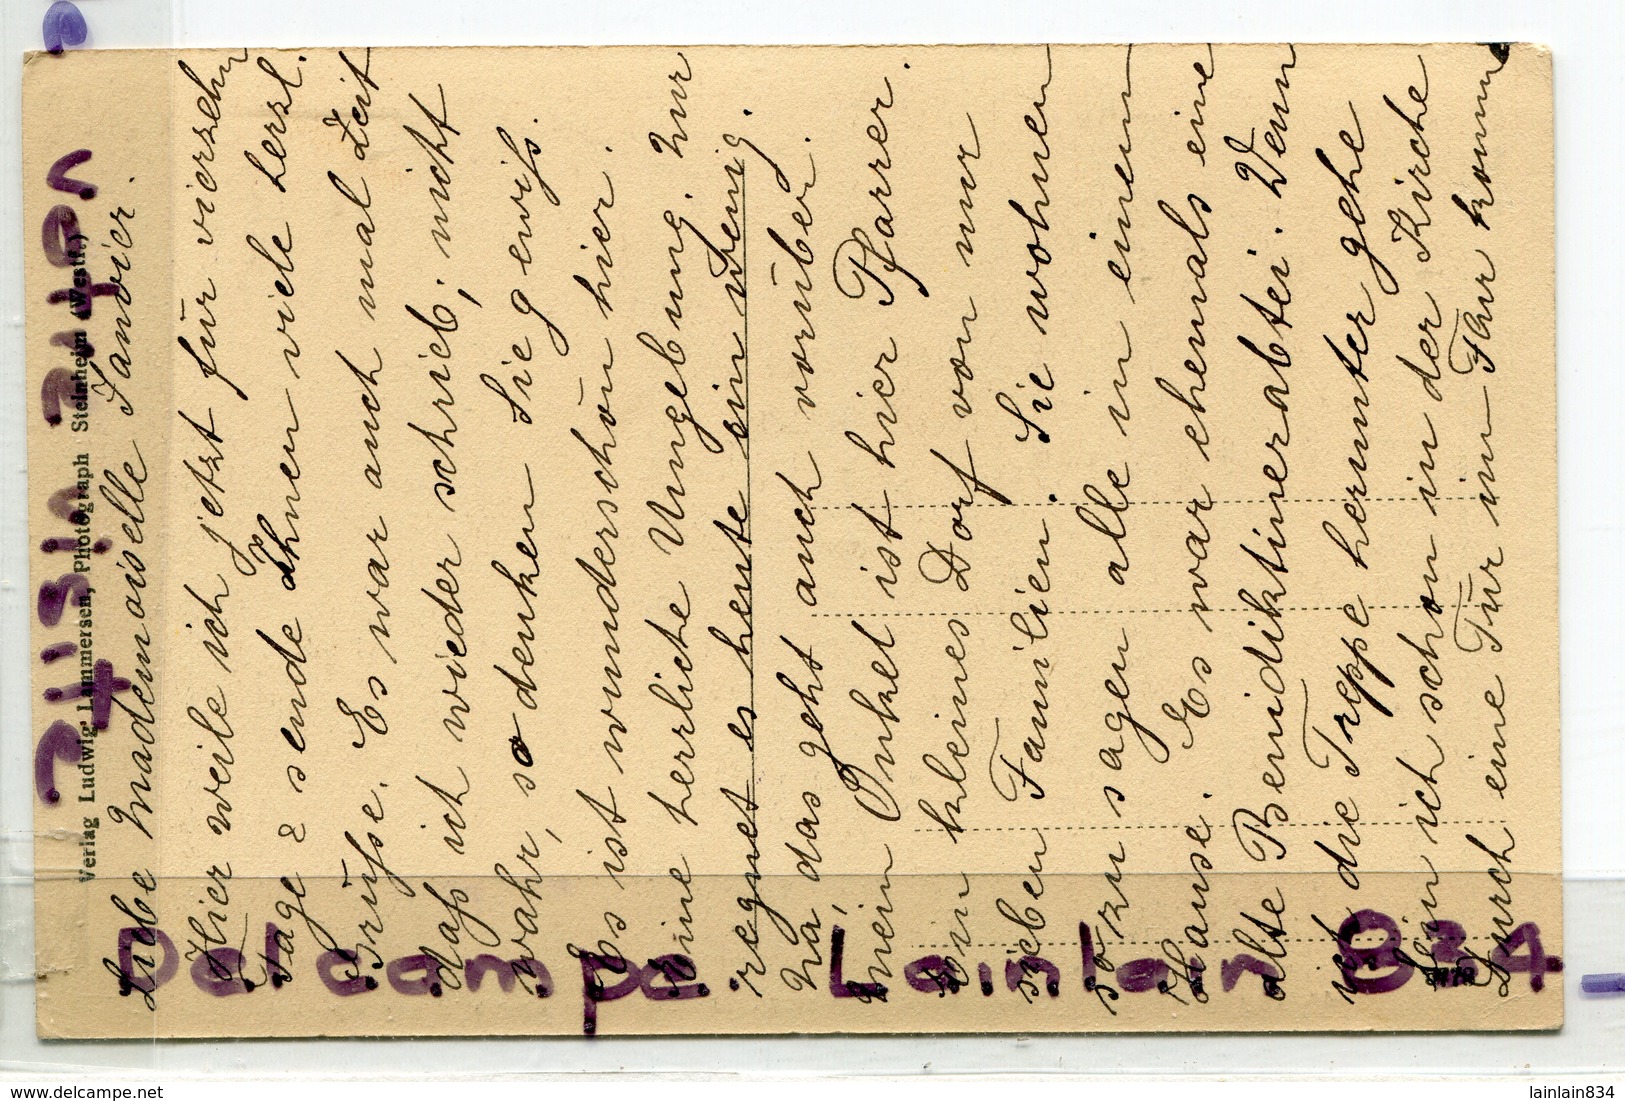 Verlag Ludwig Lammersen, Photograph Steinheim (Westf.)
Liebe Mademoiselle Janvier.
Hier weile ich jetzt für vierzehn
Tage & sende Ihnen viele herzl.
Grüße. Es war auch mal Zeit
daß ich wieder schrieb, nicht
wahr, so denken Sie gewiß.
Es ist wunderschön hier.
Eine herrliche Umgebung. Nur
regnet es heute ein wenig.
Na, das geht auch vorüber.
Mein Onkel ist hier Pfarrer.
Ein kleines Dorf von nur
sieben Familien. Sie wohnen
sozusagen alle in einem
Hause. Es war ehemals eine
alte Benidiktinerabtei. Wenn
ich die Treppe herunter gehe
bin ich schon in der Kirche
Durch eine Tür im Flur komme
Delcampe Lainlain 834
lainlain834
www.delcampe.net